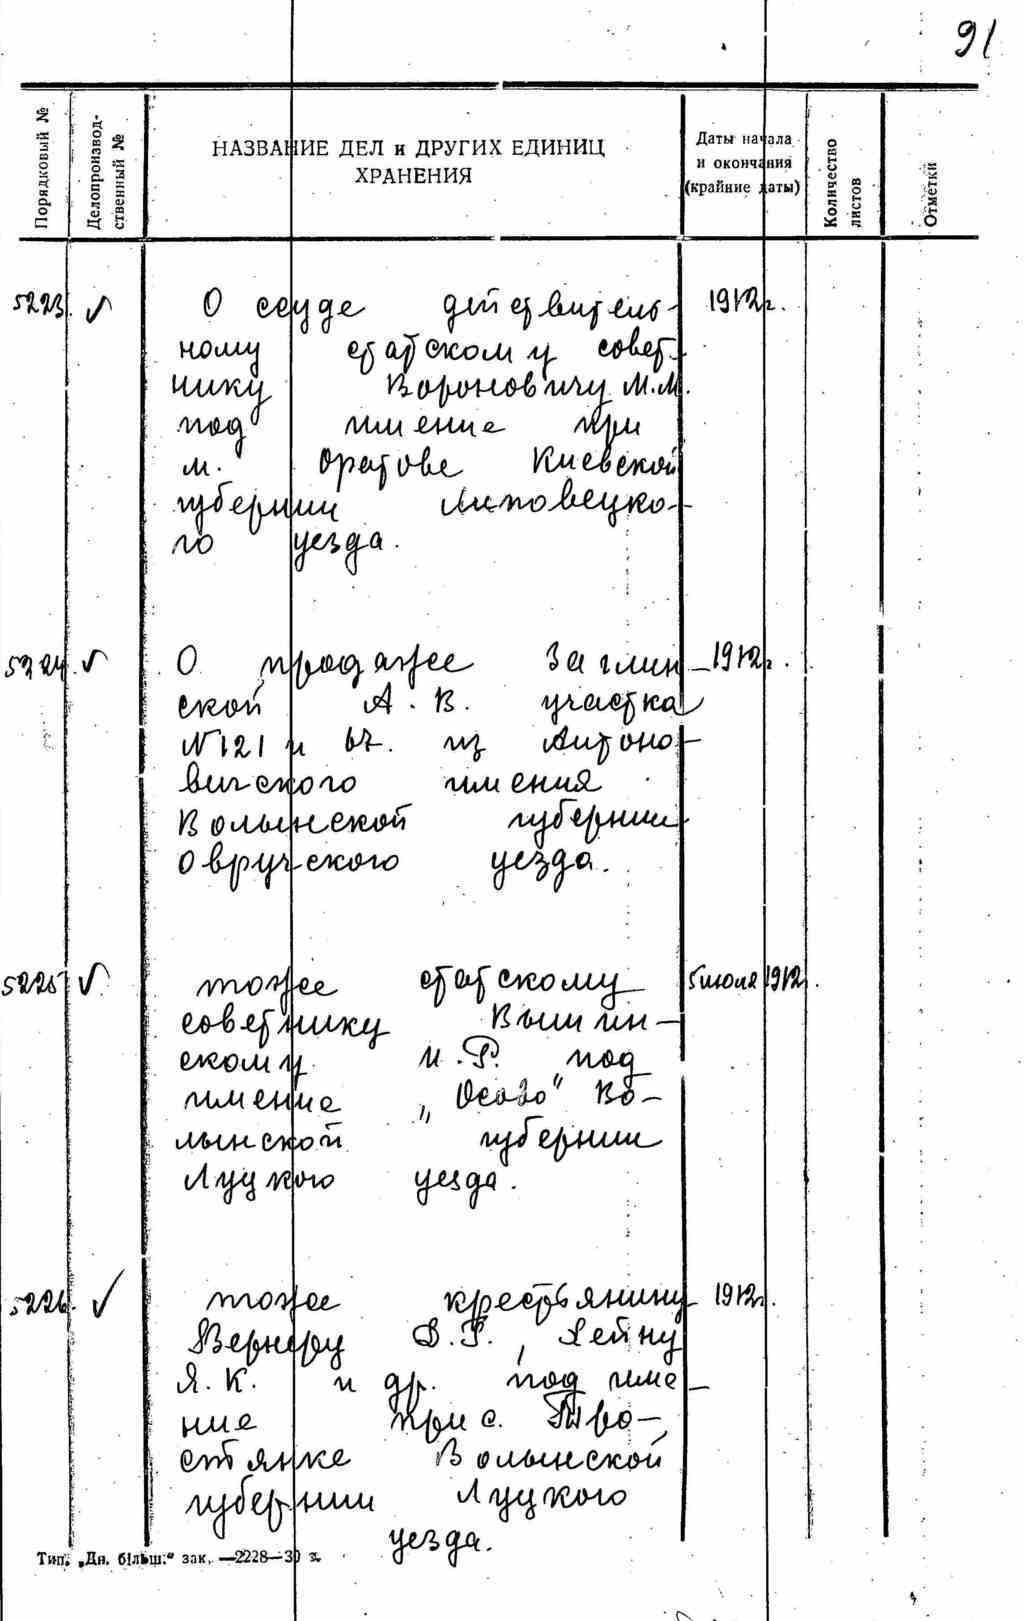 91
Порядковый №
Делопроизвод-
ственный №
НАЗВАНИЕ ДЕЛ и ДРУГИХ ЕДИНИЦ
ХРАНЕНИЯ
Даты начала
и окончания
(крайние даты)
Количество
листов
Отметки
5223. О ссуде действитель- 1912г.
ному статскому совет-
нику Вороновичу М.М.
под имение при
м. Оратове Киевской
губернии Липовецко-
го уезда.
5224. О продаже Заглин- 1912г.
ской А.В. участка
№121 и 67. из Антоно-
вичского имения
Волынской губернии
Овручского уезда.
5225 тоже статскому 5 июля 1912г.
советнику Вышин-
скому И.Р. под
имение „Осово" Во-
лынской губернии
Луцкого уезда.
5226. тоже крестьянину 1912г.
Вернеру , Лейну
Я.К. и др. под име-
ние при с. Тро-
стянке Волынской
губернии Луцкого
уезда.
Тип. „Дн. більш." зак. —2228—30 г.